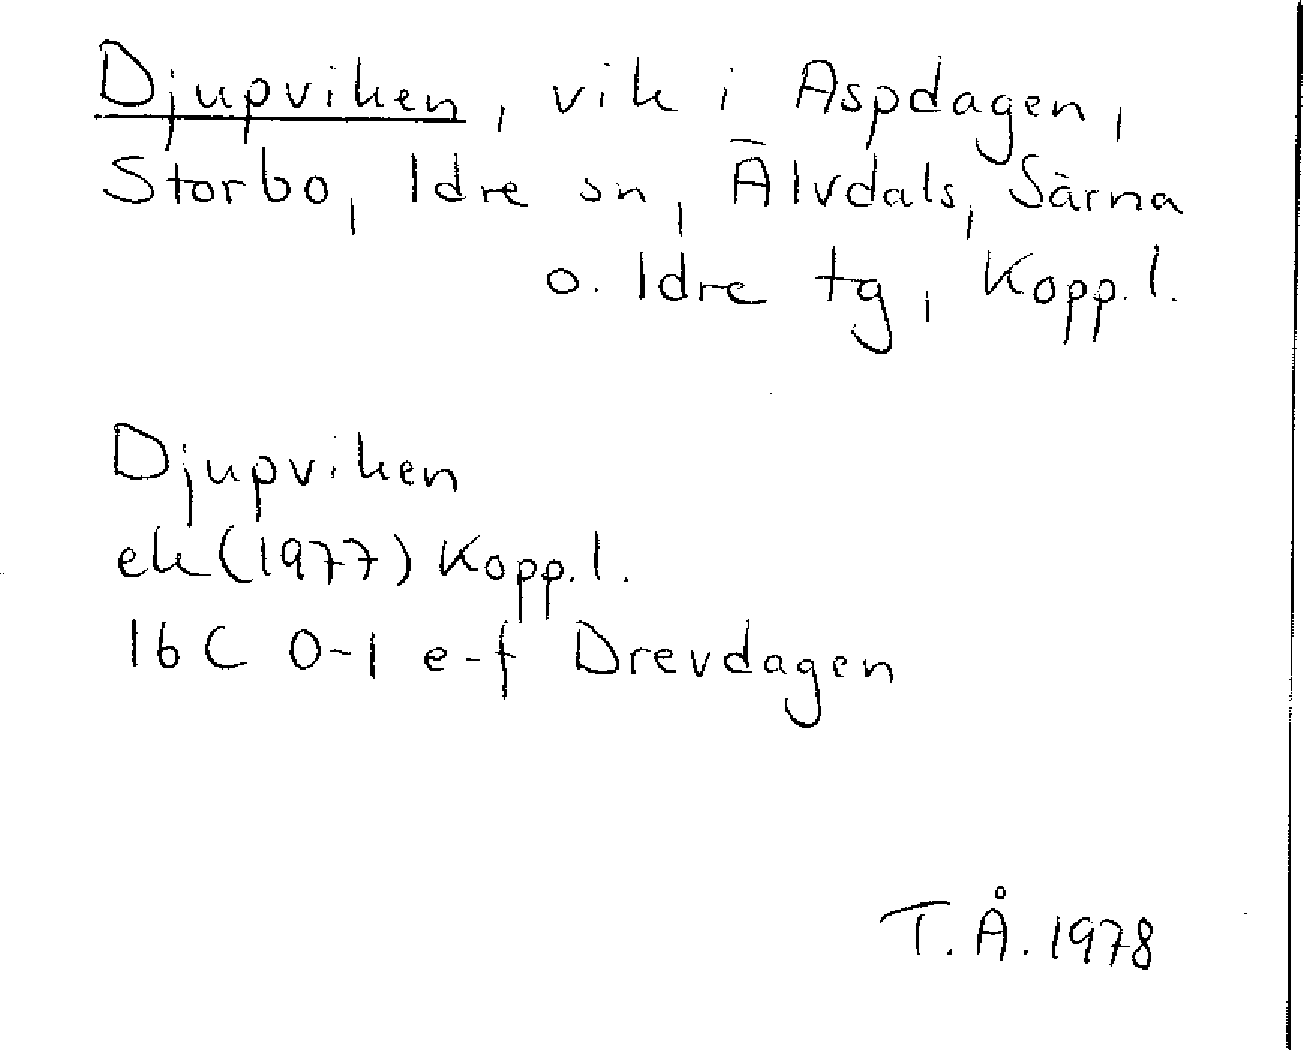 Djupviken, vik i Aspdagen,
Storbo, Idre sn, Älvdals, Särna
o. Idre tg, Kopp. l.
Djupviken
ek (1977) Kopp. l.
16 C 0-1 e-f Drevdagen
T. Å. 1978